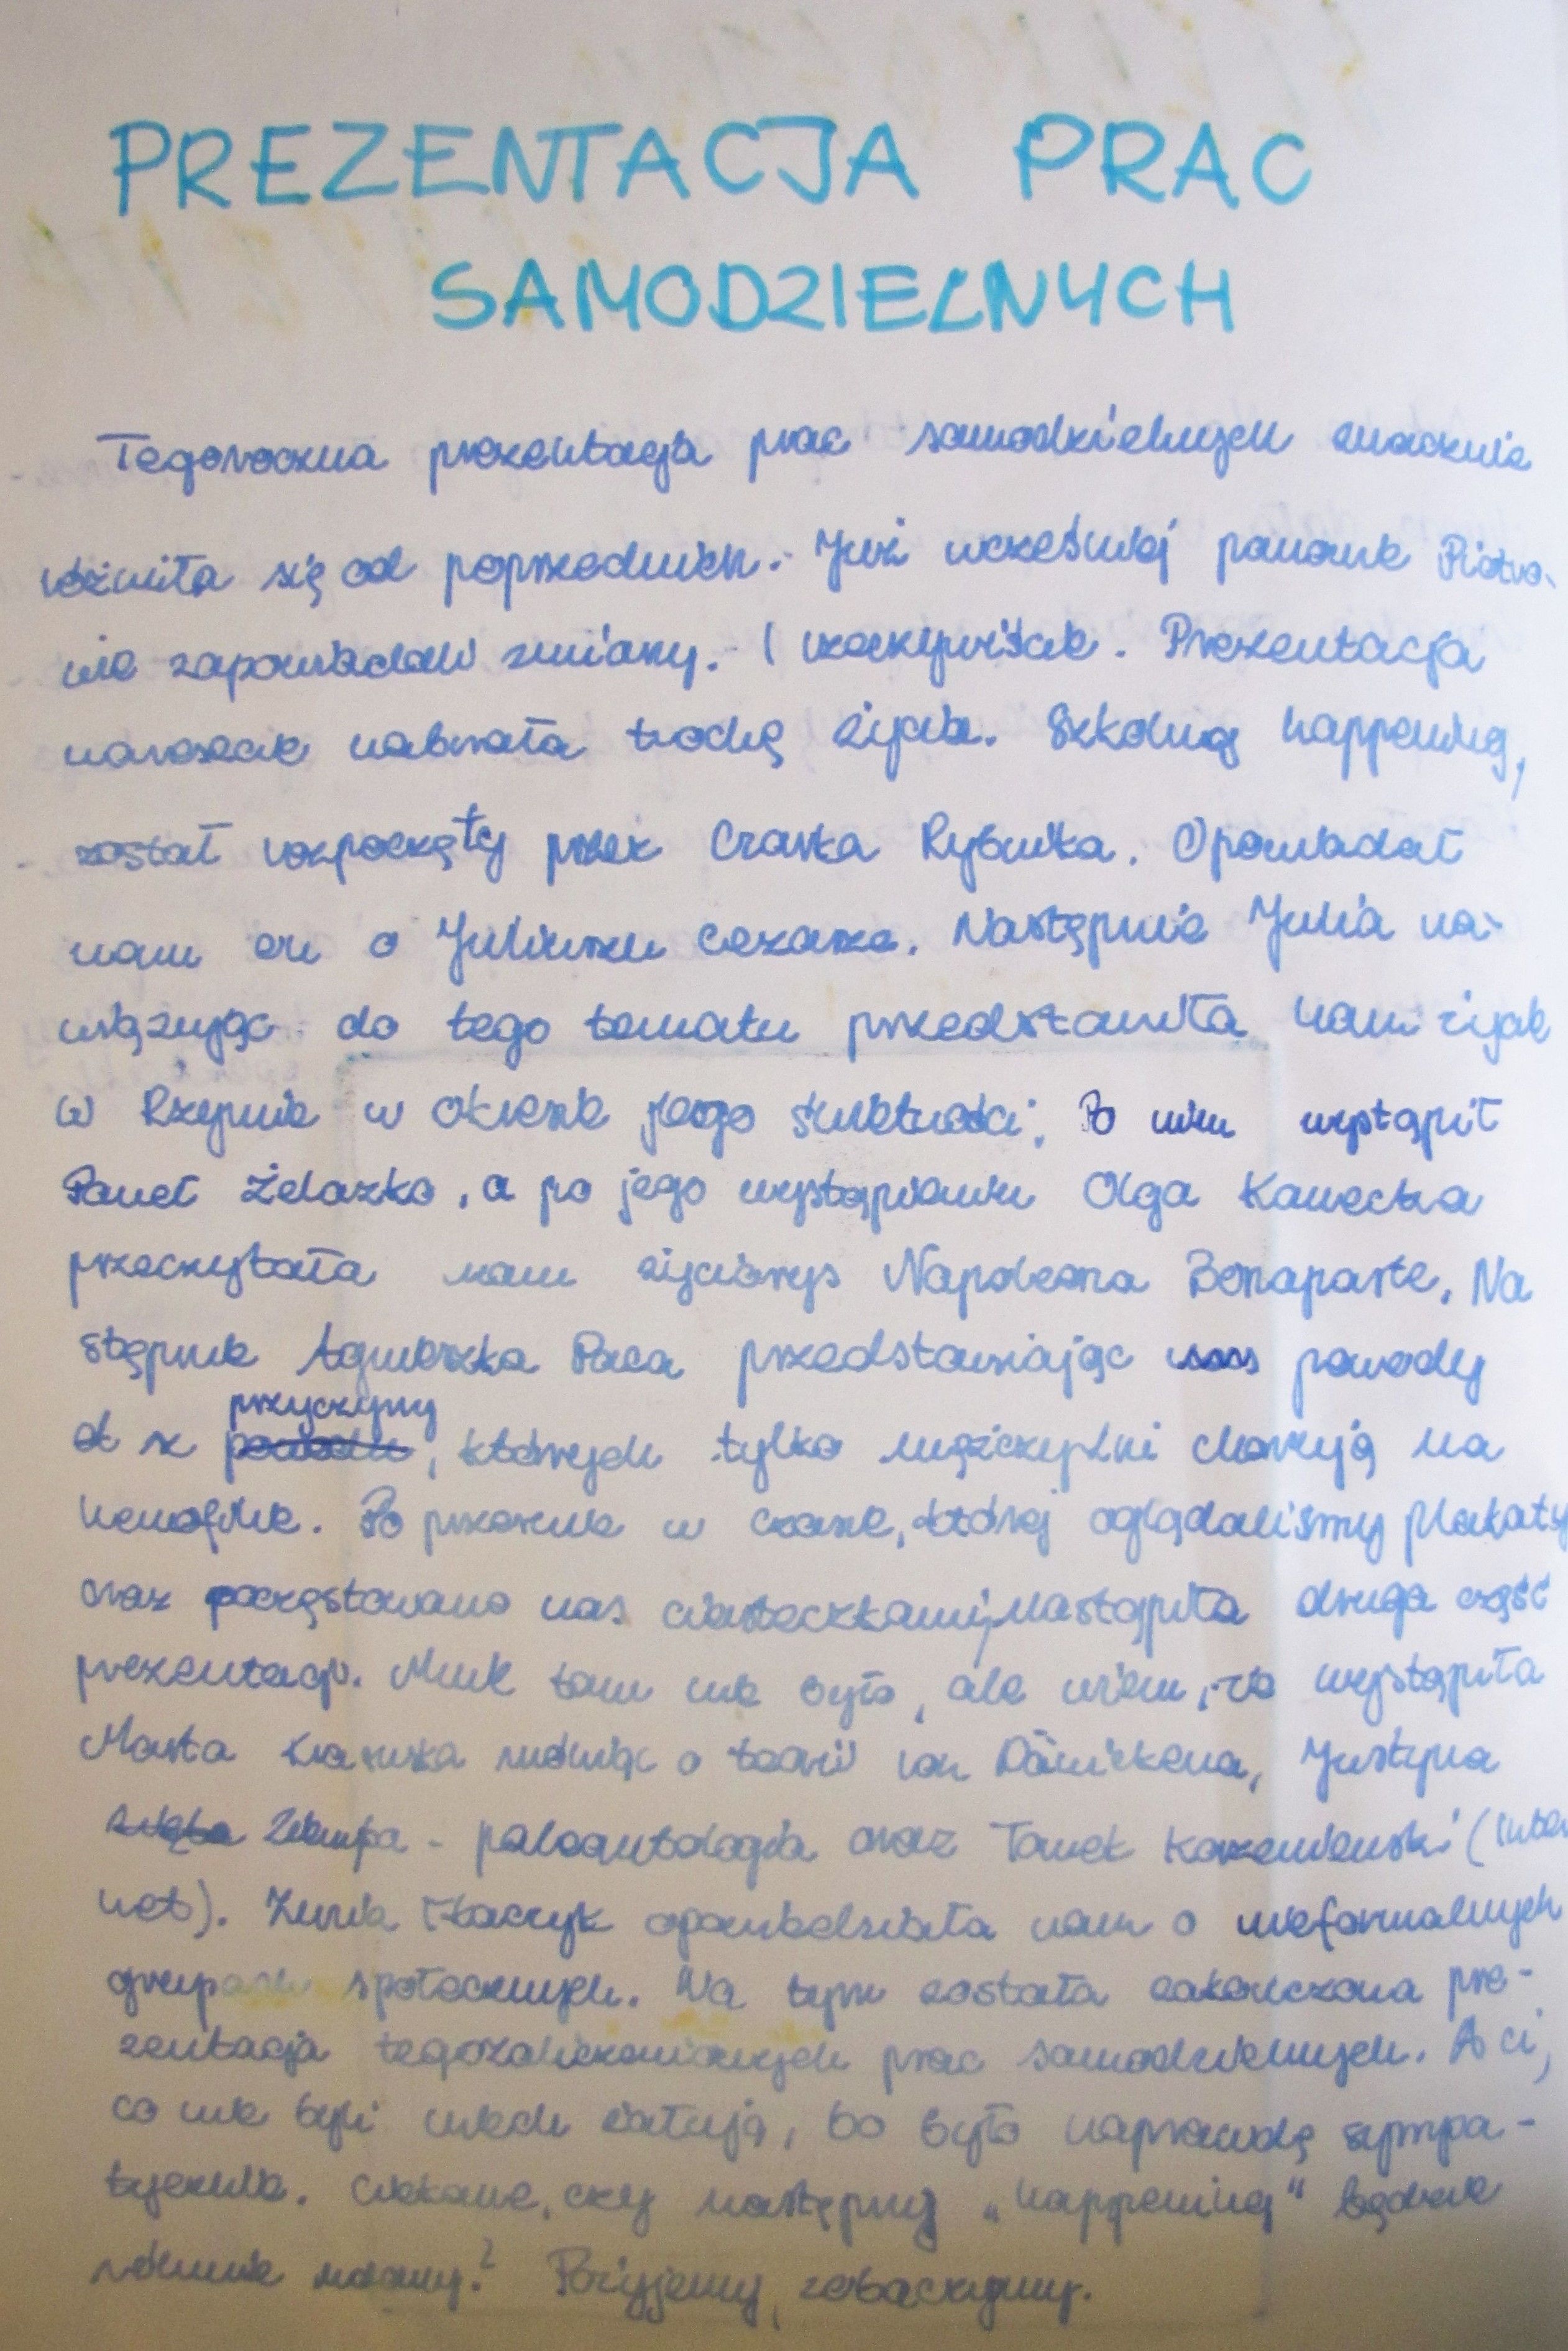 PREZENTACJA PRAC
SAMODZIELNYCH
Tegoroczna prezentacja prac samodzielnych znacznie
różniła się od poprzednich. Już wcześniej panowie Piotro-
wie zapowiadali zmiany. I rzeczywiście. Prezentacja
nareszcie nabrała trochę życia. Szkolny happening,
został rozpoczęty przez Czarka Rybnika. Opowiadał
nam on o Juliuszu Cezarze. Następnie Julia na-
wiązując do tego tematu przedstawiła nam życie
w Rzymie w okresie jego świetności. Po nim wystąpił
Paweł Żelazko, a po jego wystąpieniu Olga Kawecka
przeczytała nam życiorys Napoleona Bonaparte. Na
stępnie Agnieszka Paca przedstawiając powody
przyczyny
których tylko mężczyźni chorują na
hemofilię. Po przerwie w czasie, której oglądaliśmy plakaty
oraz poczęstowano nas ciasteczkami, nastąpiła druga część
prezentacji. Mnie tam nie było, ale wiem, że wystąpiła
Marta mówiąc o teorii von Dänikena, Justyna
- paleontologia oraz Tomek (inter
net). Zuzia Tkaczyk opowiedziała nam o nieformalnych
grupach społecznych. Na tym została zakończona pre-
zentacja prac samodzielnych. A ci,
co nie byli niech żałują, bo było naprawdę sympa-
tycznie. Ciekawe, czy następny „happening" będzie
równie udany? Pożyjemy, zobaczymy.